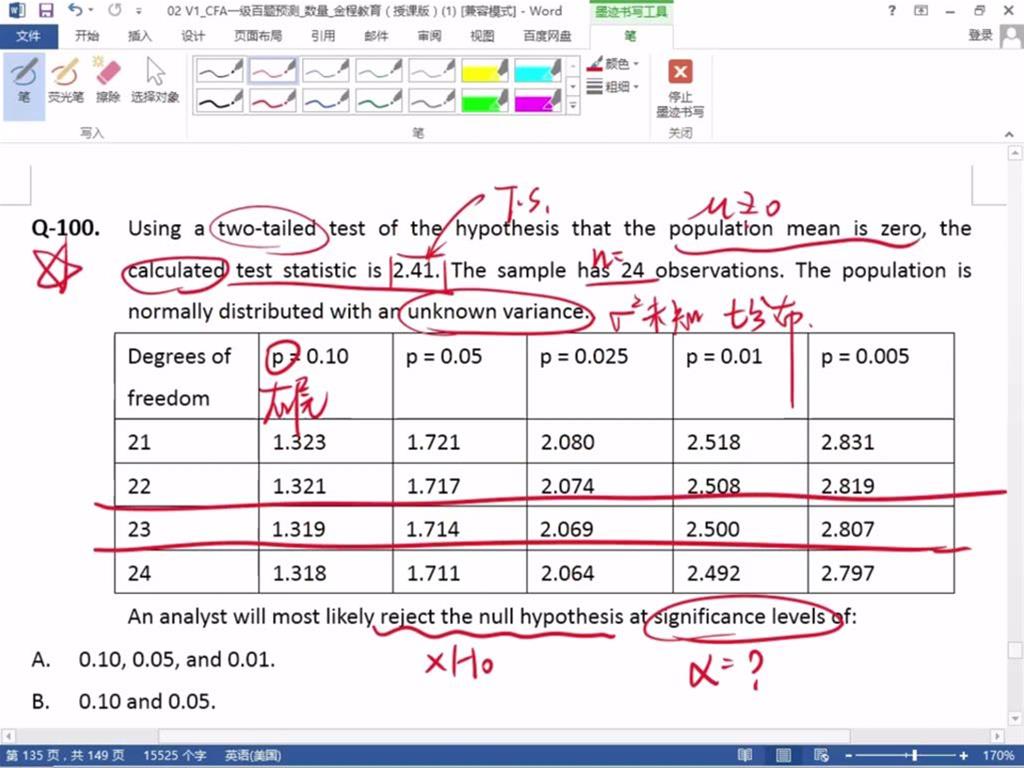 02 V1_CFA一级百题预测_数量_金程教育（授课版）(1) [兼容模式] - Word
墨迹书写工具
文件 开始 插入 设计 页面布局 引用 邮件 审阅 视图 百度网盘 笔 登录
笔 荧光笔 擦除 选择对象 颜色 粗细 停止 墨迹书写
写入 笔 关闭
T.S.
Q-100. Using a two-tailed test of the hypothesis that the population mean is zero, the
n=
calculated test statistic is 2.41. The sample has 24 observations. The population is
normally distributed with an unknown variance. σ²未知 t分布.
Degrees of freedom p = 0.10 p = 0.05 p = 0.025 p = 0.01 p = 0.005
右尾
21 1.323 1.721 2.080 2.518 2.831
22 1.321 1.717 2.074 2.508 2.819
23 1.319 1.714 2.069 2.500 2.807
24 1.318 1.711 2.064 2.492 2.797
An analyst will most likely reject the null hypothesis at significance levels of:
×H₀ α=?
A. 0.10, 0.05, and 0.01.
B. 0.10 and 0.05.
第 135 页，共 149 页 15525 个字 英语(美国) 170%